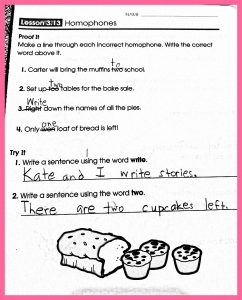 NAME
Lesson 3:13 Homophones
Proof It
Make a line through each incorrect homophone. Write the correct
word above it.
to
1. Carter will bring the muffins two school.
two
2. Set up too tables for the bake sale.
Write
3. Right down the names of all the pies.
one
4. Only won loaf of bread is left!
Try It
1. Write a sentence using the word write.
Kate and I write stories.
2. Write a sentence using the word two.
There are two cupcakes left.